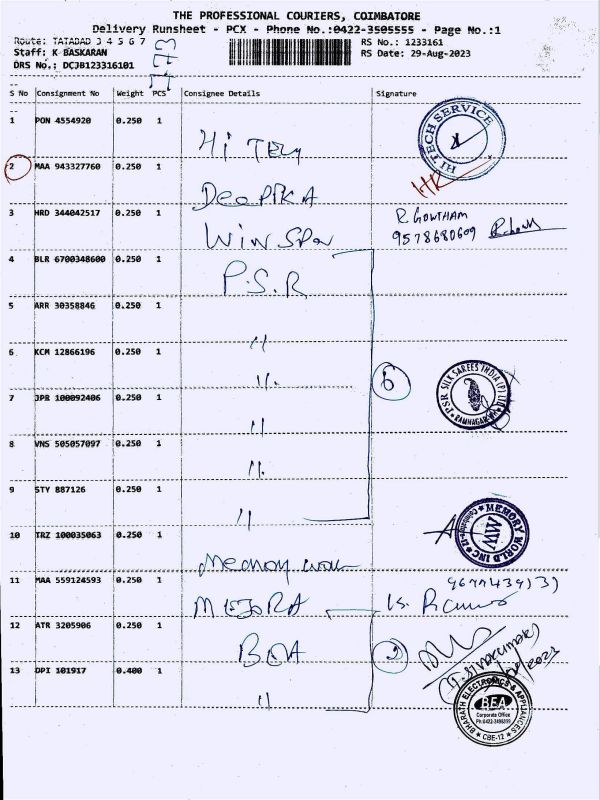 THE PROFESSIONAL COURIERS, COIMBATORE
Delivery Runsheet - PCX - Phone No.:0422-3505555 - Page No.:1
Route: TATABAD 3 4 5 6 7
RS No.: 1233161
Staff: K BASKARAN
RS Date: 29-Aug-2023
DRS No.: DCJB123316101
S No Consignment No Weight PCS Consignee Details Signature
1 PON 4554920 0.250 1 Hi Tech
HI TECH SERVICE
2 MAA 943327760 0.250 1 DeePIKA
3 HRD 344042517 0.250 1 Win Spa
R GOWTHAM
9578680609
4 BLR 6700348600 0.250 1 P.S.R
5 ARR 30358846 0.250 1 "
6 KCM 12866196 0.250 1 "
6
PSR SILK SAREES INDIA (P) LTD
RAMNAGAR
7 JPR 100092406 0.250 1 "
8 VNS 505057097 0.250 1 "
9 STY 887126 0.250 1 "
10 TRZ 100035063 0.250 1 Memory
MEMORY WORLD INC
MW
11 MAA 559124593 0.250 1
12 ATR 3205906 0.250 1 BEA
13 DPI 101917 0.400 1 "
BHARATH ELECTRONICS & APPLIANCES
BEA
Corporate Office
CBE-12